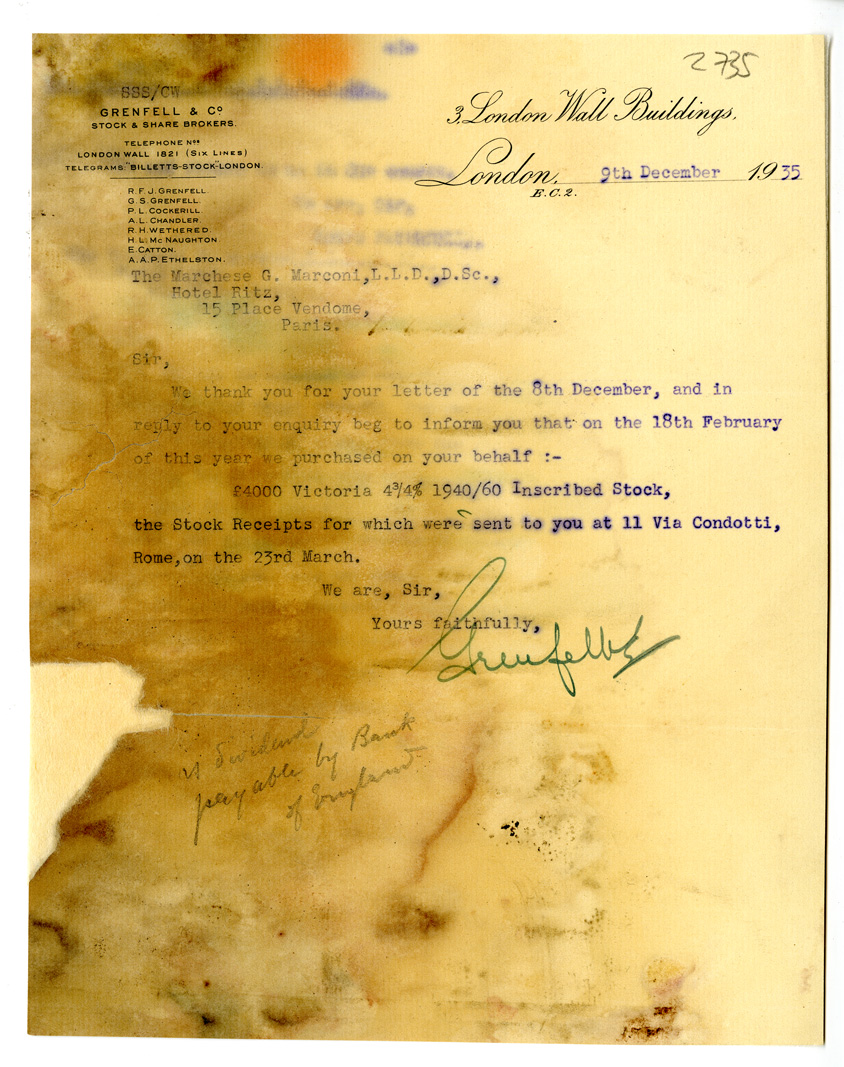 2735
SSS/CW
GRENFELL & Cº
STOCK & SHARE BROKERS.
TELEPHONE Nºˢ
LONDON WALL 1821 (SIX LINES)
TELEGRAMS: "BILLETTS-STOCK-LONDON.
R.F.J. GRENFELL.
G.S. GRENFELL.
P.L. COCKERILL
A.L. CHANDLER.
R.H. WETHERED.
H.L. Mc NAUGHTON
E. CATTON.
A.A.P. ETHELSTON.
3, London Wall Buildings.
London, 9th December 1935
E.C.2.
The Marchese G. Marconi,L.L.D.,D.Sc.,
Hotel Ritz,
15 Place Vendome,
Paris.
Sir,
We thank you for your letter of the 8th December, and in
reply to your enquiry beg to inform you that on the 18th February
of this year we purchased on your behalf :-
£4000 Victoria 4¾% 1940/60 Inscribed Stock,
the Stock Receipts for which were sent to you at 11 Via Condotti,
Rome,on the 23rd March.
We are, Sir,
Yours faithfully,
Grenfell & Co
dividend
payable by Bank
of England